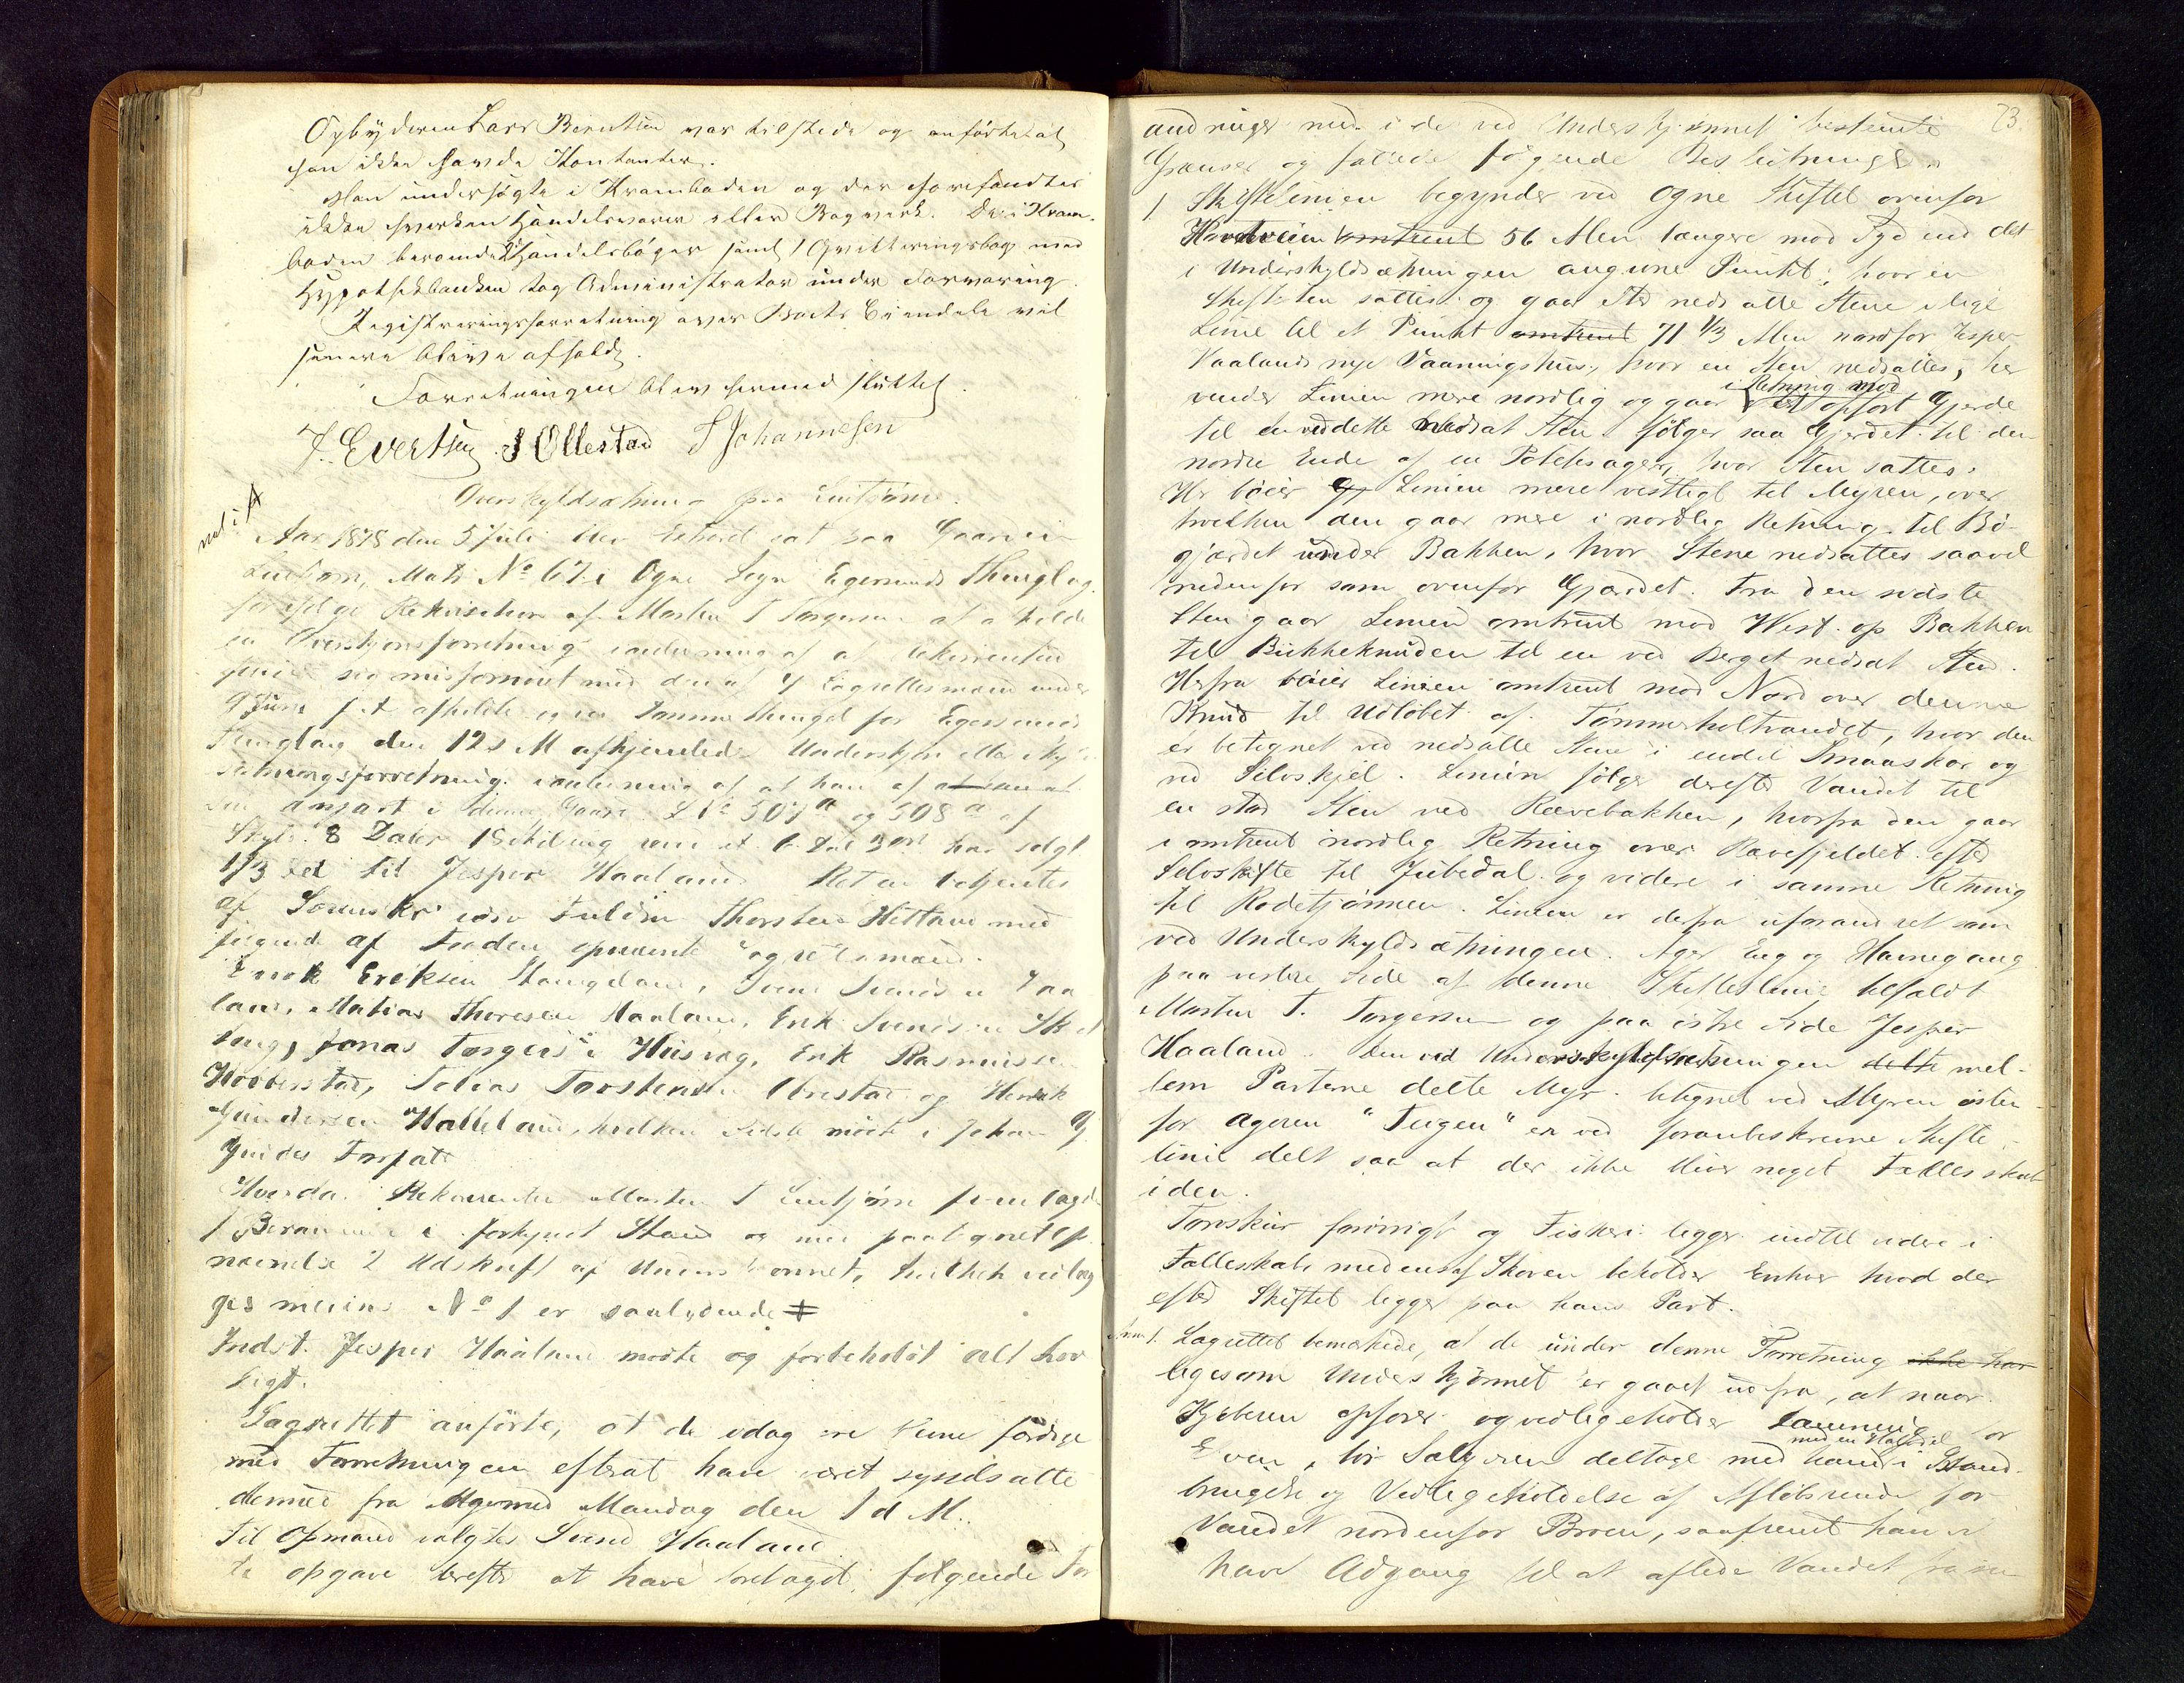 Opbyderen Lars Berentsen var tilstede og anførte at
han ikke havde Kontanter.
Man undersøgte i Kramboden og der forefandtes
ikke hverken Handelsvarer eller Bagværk. De i Kram-
boden beroende 2 Handelsbøger samt 1 Qvitteringsbog med
Hypothekbanken tog Administrator under Forvaring.
Registreringsforretning over Boets Eiendele vil
senere blive afholdt.
Forretningen blev hermed sluttet.
J. Evertsen S Ollestad S Johannesen
Overskyldsætning paa Luitjørn.
Aar 1878 den 5 Juli blev Extraret sat paa Gaarden
Luitjørn, Matr No 67 i Ogne Sogn Egersunds Thinglag
ifølge Rekvisition af Morten T Torgersen at afholde
en Overskjønsforretning i anledning af at Rekvirenten
sig misfornøiet med den af 4 Lagrettesmænd under
9 Juni f A afholdte og ved Sommerthinget for Egersunds
Thinglag den 12 s M afhjemlede Underskjøn eller Skyld-
sætningsforretning i anledning af at han af
sin anpart i denne Gaard L No 507a og 508a af
Skyld 8 Daler 1 Skilling har solgt
1/3 Del til Jesper Haaland. Retten betjentes
af Sorenskr edsv Fuldm Thorsten Hetland med
følgende af Fogden opnævnte Lagrettesmænd.
Enok Eriksen Stangeland, Svend Svendsen Haa-
land, Mathias Thoresen Haaland, Erik Svendsen
Jonas Torgersen Husvæg, Erik Rasmussen
Hovberstad, Tobias Torstensen Obrestad og Henrik
Gundersen Hatteland, hvilken sidste mødte i Johan
Forfald
Hvorda Rekvirenten Morten T Luitjørn fremlagde
1 Beramm i forkyndt Stand og med paategnet Op-
nævnelse 2 Udskrift af Underskjønnet, hvilket vedlæg-
ges medens No 1 er saalydende ‡
Indst. Jesper Haaland mødte og forbeholdt alt lov-
ligt.
Lagrettet anførte, at de idag ere blevne færdige
med Forretningen efterat have været sysselsatte
dermed fra Morgenen Mandag den 1 d M.
Til Opmand valgtes Svend Haaland.
De opgave derefter at have foretaget følgende For
73.
andringer med i de ved Underskjønnet bestemte
Grænser og fattede følgende Beslutninger
1 Skiftelinien begynder ved Ogne Skiftet ovenfor
omtrent 56 Alen længere mod Syd end det
i Underskyldsætningen angivne Punkt, hvor en
Skiftesten sattes og gaar efter nedsatte Stene i lige
Linie til et Punkt omtrent 71 1/3 Alen nordfor Jesper
Haalands nye Vaaningshus, hvor en Sten nedsattes, her
vender Linien mere nordlig og gaar i Retning mod et opført Gjerde
til en ved dette nedsat Sten følger saa Gjerdet til den
nordre Ende af en Potetesager, hvor Sten sattes.
Her bøier Linien mere vestligt til Myren, over
hvilken den gaar mere i nordlig Retning til Bø-
gjærdet under Bakken, hvor Stene nedsattes saavel
nedenfor som ovenfor Gjærdet. Fra den sidste
Sten gaar Linien omtrent mod Vest op Bakken
til Bukkeknuden til en ved Berget nedsat Sten.
Herfra bøier Linien omtrent mod Nord over denne
Knud til Udløbet af Tømmerholtvandet, hvor den
er betegnet ved nedsatte Stene i endel Smaaskar og
ved Selvskjel. Linien følger derefter Vandet til
en stor Sten ved Rævebakken, hvorfra den gaar
i omtrent nordlig Retning over Rævefjeldet efter
Selvskifte til Jubedal og videre i samme Retning
til Rødetjønnen. Linien er derfra uforandret som
ved Underskyldsætningen. Ager Eng og Havnegang
paa vestre Side af denne Skiftelinie tilfaldt
Morten T. Torgersen og paa østre Side Jesper
Haaland. Den ved Underskyldsætningen delte mel-
lem Parterne delte Myr, betegnet ved Myren østen-
for ageren "Teigen" er ved foranbeskrevne Skifte-
linie delt saa at der ikke bliver noget Fællesskab
i den.
Torvskur forøvrigt og Fiskeri ligger indtil videre i
Fælleskab medens af Skoven beholder Enhver hvad der
efter Skiftet ligger paa hans Part.
Anm 1. Lagrettet bemærkede, at de under denne Forretning ikke har
ligesom Underskjønnet er gaaet ud fra, at naar
Kjøberen opfører og vedligeholder
Sælgeren deltage med en Halvdel med ham i Istand-
bringelse og Vedligeholdelse af Afløbsrende for
Vandet nordenfor Broen, saafremt han vil
have Adgang til at aflede Vandet fra